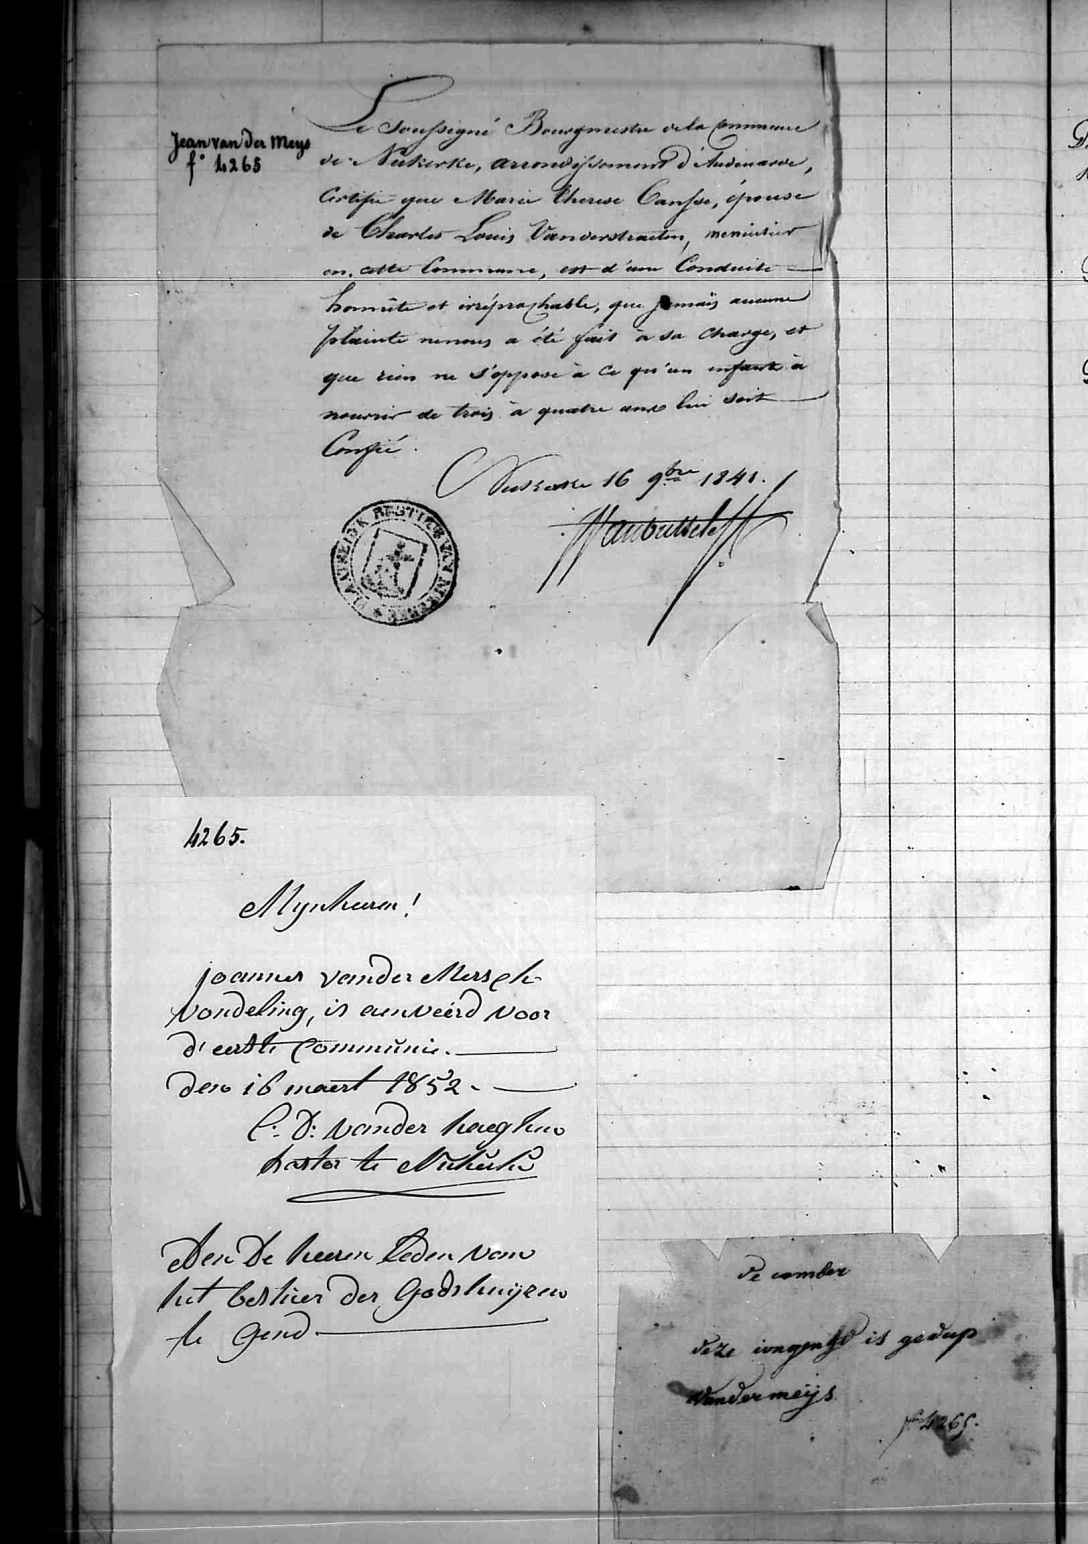 Jean van der Meijs
f° 4265
Le Soussigné Bourgmestre de la Commune
de Nukerke, arrondissement d'Audenarde,
Certifie que Marie Therese Cansse, épouse
de Charles Louis Vanderstraeten, menuisier
en cette Commune, est d'une Conduite
honnête et irréprochable, que jamais aucune
plainte ne nous a été fait à sa charge, et
que rien ne s'oppose à ce qu'un enfant à
nourrir de trois à quatre ans lui soit
Confié.
Nukerke 16 9bre 1841.
PLAATSELYK BESTUUR VAN
4265.
Mynheeren!
joannes vander Mersch
vondeling, is aenveérd voor
d'eerste Communie.
den 16 maert 1852.
C: D: vander haeghen
pastor te Nukerke
Aen De heeren Leden van
het bestier der Godshuijzen
te Gend
deze is gedup
Vandermeijs
f° 4265.